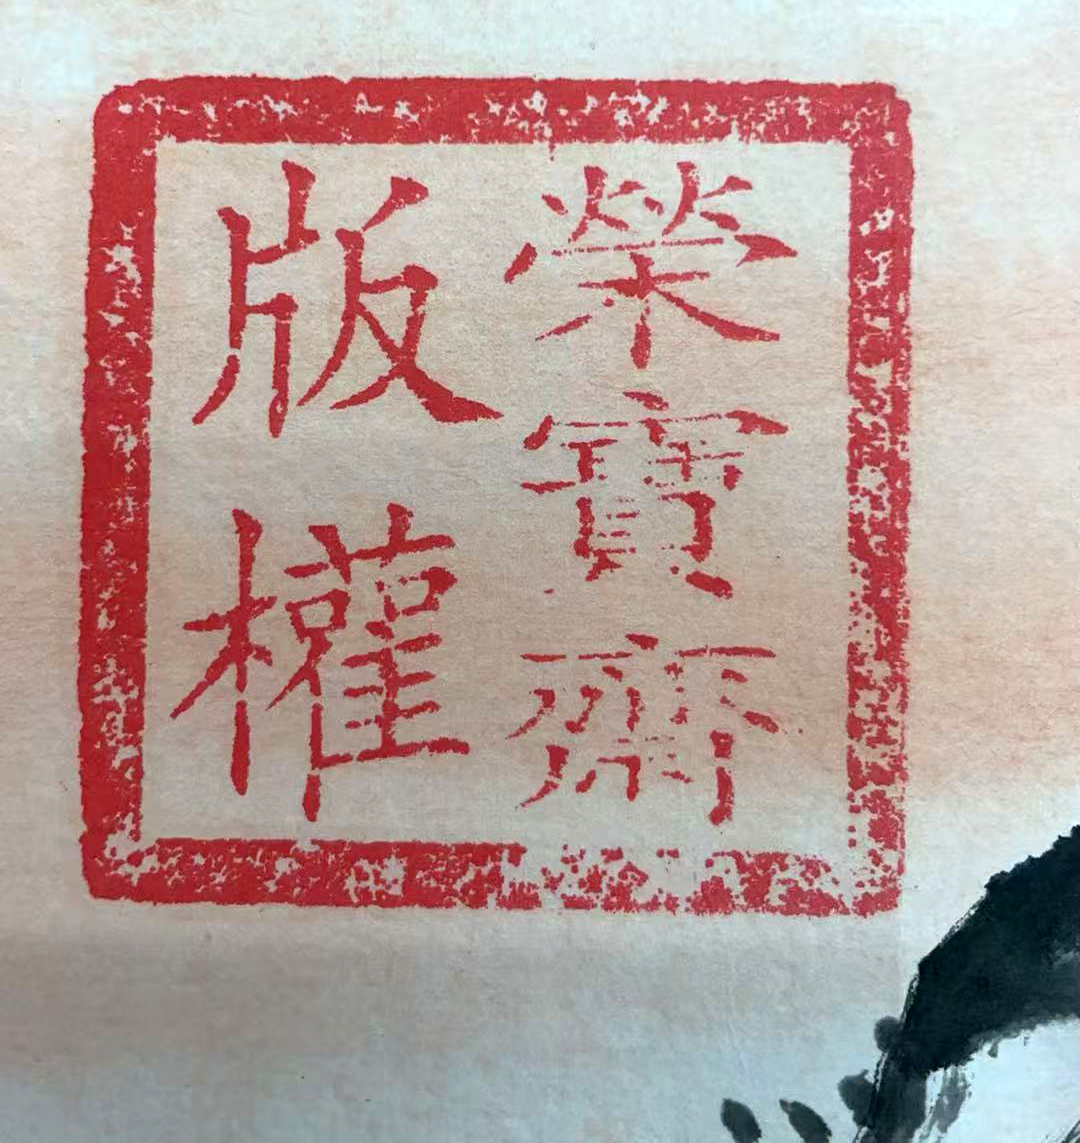 榮寶齋
版權